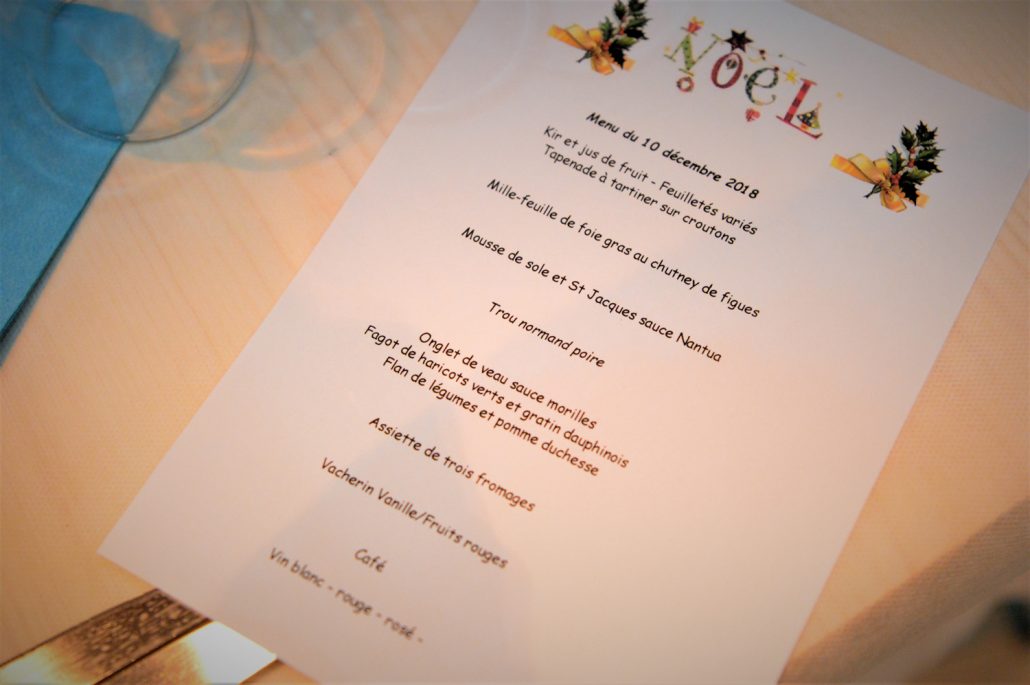 NOEL
Menu du 10 décembre 2018
Kir et jus de fruit - Feuilletés variés
Tapenade à tartiner sur croutons
Mille-feuille de foie gras au chutney de figues
Mousse de sole et St Jacques sauce Nantua
Trou normand poire
Onglet de veau sauce morilles
Fagot de haricots verts et gratin dauphinois
Flan de légumes et pomme duchesse
Assiette de trois fromages
Vacherin Vanille/Fruits rouges
Café
Vin blanc - rouge - rosé -